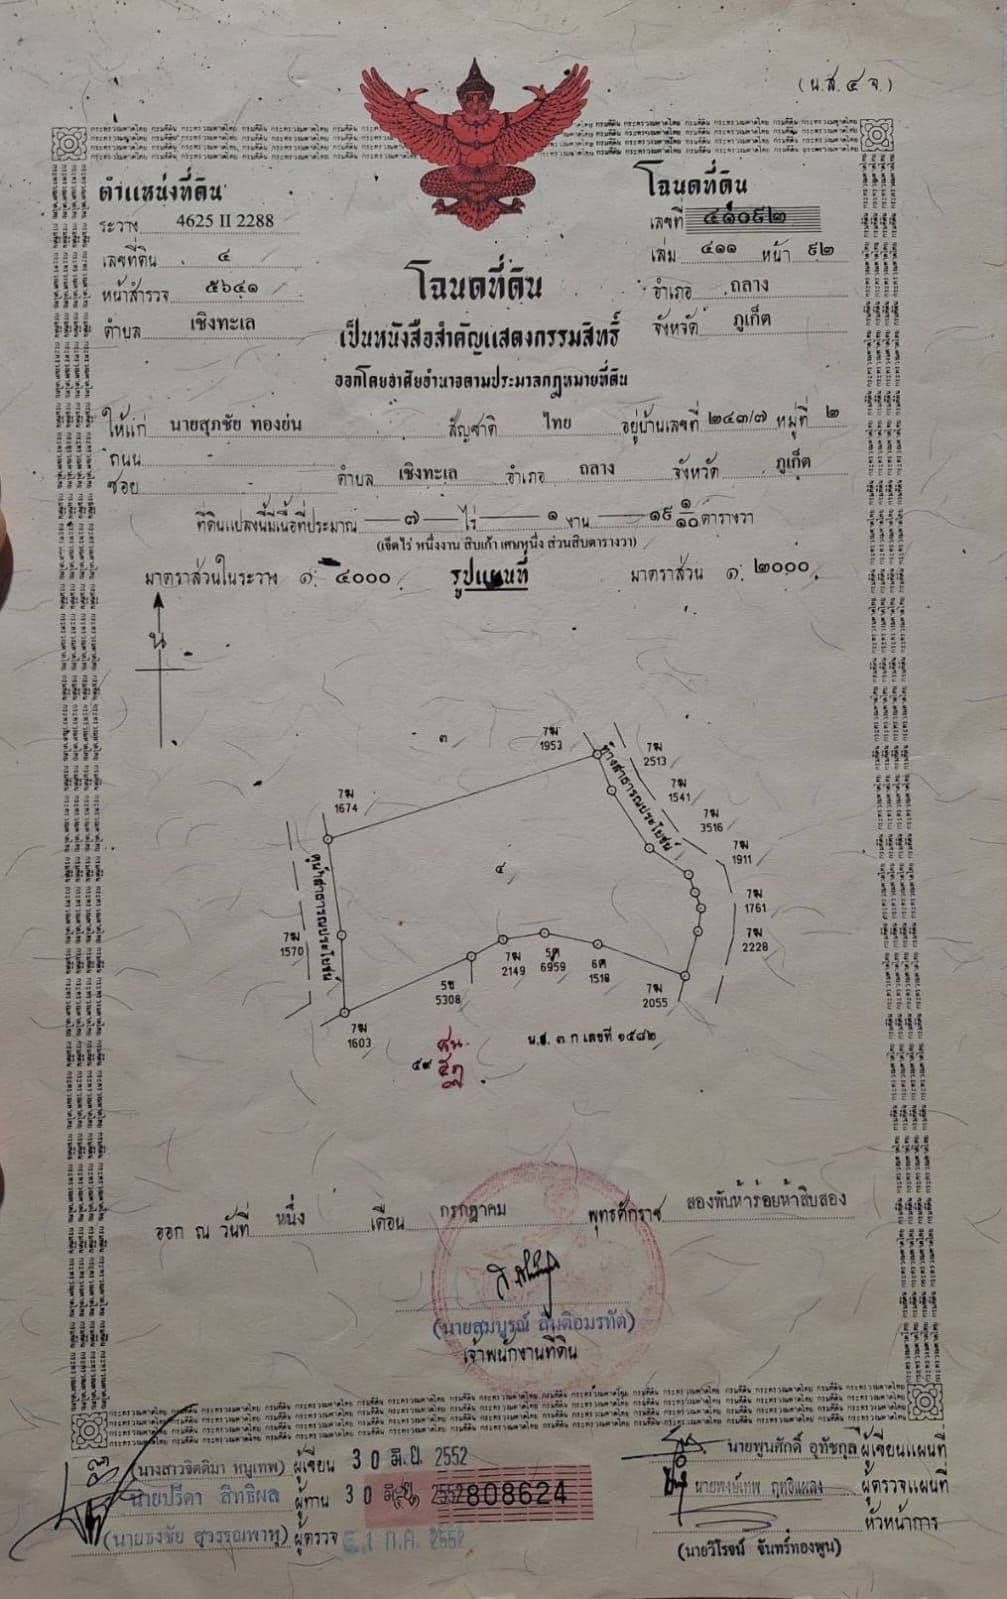 (น.ส. ๔ จ.)
ตำแหน่งที่ดิน
ระวาง 4625 II 2288
เลขที่ดิน ๔
หน้าสำรวจ ๕๖๔๑
ตำบล เชิงทะเล
โฉนดที่ดิน
เลขที่ ๔๑๐๙๒
เล่ม ๔๑๑ หน้า ๙๒
อำเภอ ถลาง
จังหวัด ภูเก็ต
โฉนดที่ดิน
เป็นหนังสือสำคัญแสดงกรรมสิทธิ์
ออกโดยอาศัยอำนาจตามประมวลกฎหมายที่ดิน
ให้แก่ นายสุภชัย ทองย่น สัญชาติ ไทย อยู่บ้านเลขที่ ๒๔๓/๗ หมู่ที่ ๒
ถนน
ซอย ตำบล เชิงทะเล อำเภอ ถลาง จังหวัด ภูเก็ต
ที่ดินแปลงนี้มีเนื้อที่ประมาณ ๗ ไร่ ๑ งาน ๑๙ ๑/๑๐ ตารางวา
(เจ็ดไร่ หนึ่งงาน สิบเก้า เศษหนึ่ง ส่วนสิบตารางวา)
มาตราส่วนในระวาง ๑: ๔๐๐๐ รูปแผนที่ มาตราส่วน ๑: ๒๐๐๐
น
๓
7ฆ
1953
7ฆ
2513
7ฆ
1541
7ฆ
3516
7ฆ
1911
7ฆ
1761
7ฆ
2228
ทางสาธารณประโยชน์
7ฆ
1674
คูน้ำสาธารณประโยชน์
๔
7ฆ
1570
7ฆ
2149
5ฅ
6959
6ค
1518
5ข
5308
7ฆ
2055
7ฆ
1603
น.ส. ๓ ก เลขที่ ๑๕๘๒
๕๙
ออก ณ วันที่ หนึ่ง เดือน กรกฎาคม พุทธศักราช สองพันห้าร้อยห้าสิบสอง
(นายสมบูรณ์ สันติอมรทัต)
เจ้าพนักงานที่ดิน
(นางสาวจิตติมา หนูเทพ) ผู้เขียน 30 มิ.ย. 2552
นายปรีดา สิทธิผล ผู้ทาน 30 มิ.ย. 2552
(นายธงชัย สุวรรณพาหุ) ผู้ตรวจ 1 ก.ค. 2552
808624
นายพูนศักดิ์ อุทัชกุล ผู้เขียนแผนที่
นายพงษ์เทพ ฤทธิแผลง ผู้ตรวจแผนที่
หัวหน้าการ
(นายวิโรจน์ จันทร์ทองพูน)